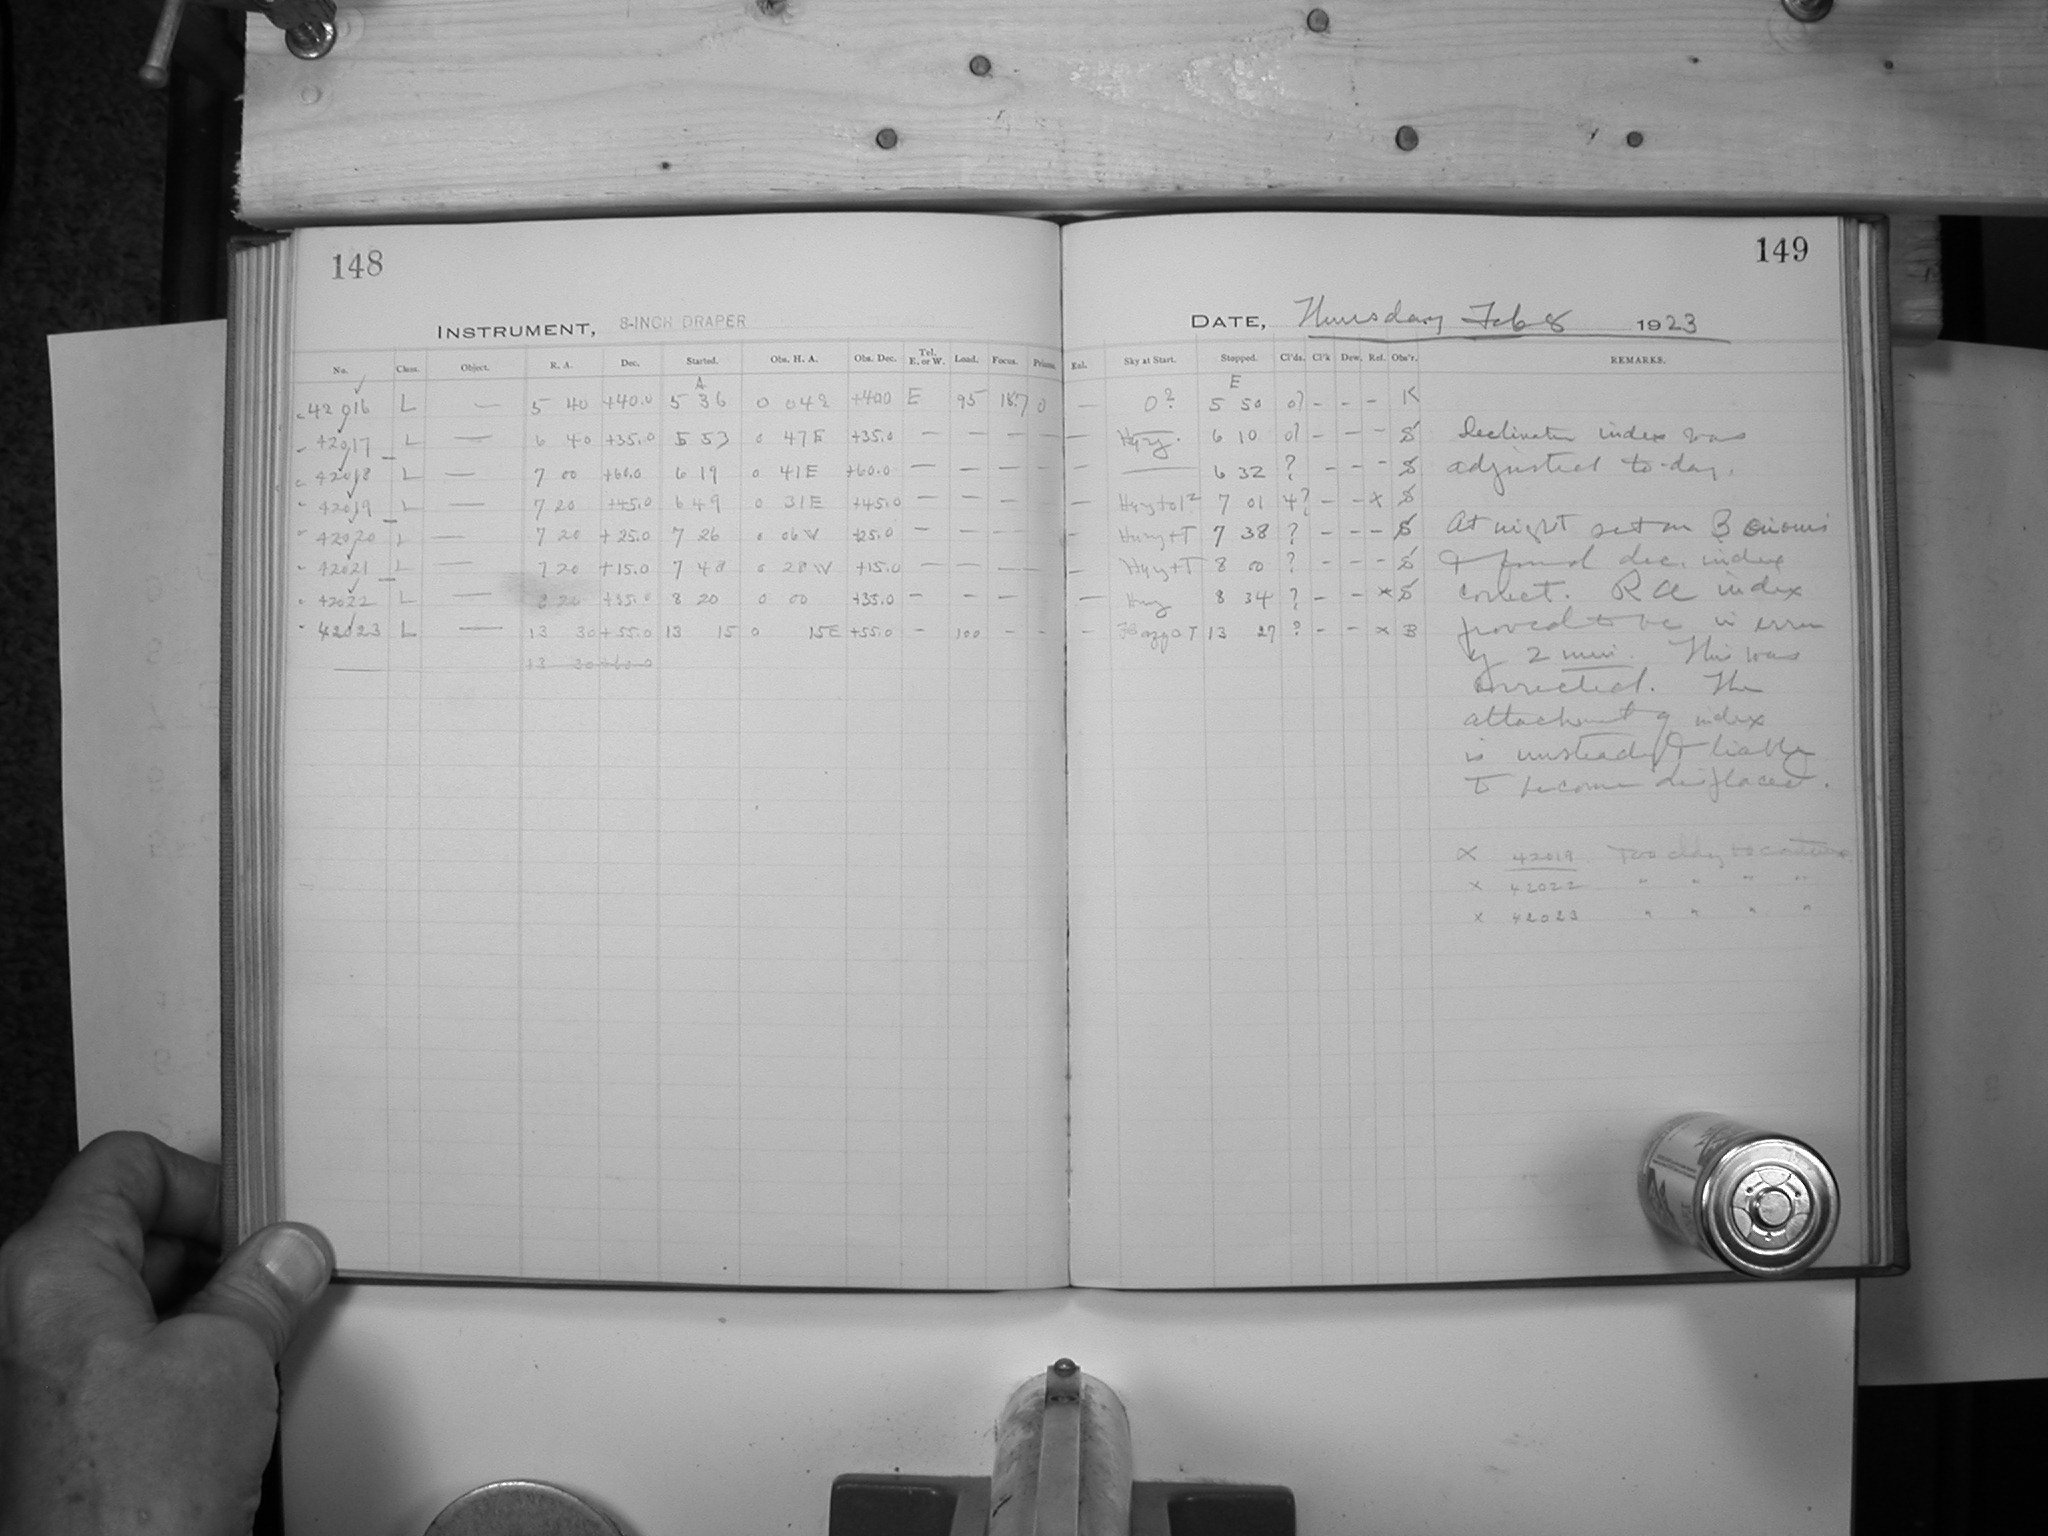 148
INSTRUMENT, 8-INCH DRAPER
No. Class. Object. R. A. Dec. Started. Obs. H. A. Obs. Dec. Tel. E. or W. Load. Focus. Prisms.
A
42016 L — 5 40 +40.0 5 36 0 04 2 +40.0 E 95 18.7 0
42017 L — 6 40 +35.0 5 53 0 47 E +35.0 — — — —
42018 L — 7 00 +60.0 6 19 0 41 E +60.0 — — — —
42019 L — 7 20 +45.0 6 49 0 31 E +45.0 — — — —
42020 L — 7 20 +25.0 7 26 0 06 W +25.0 — — — —
42021 L — 7 20 +15.0 7 48 0 28 W +15.0 — — — —
42022 L — 8 20 +35.0 8 20 0 00 +35.0 — — — —
42023 L — 13 30 +55.0 13 15 0 15 E +55.0 - 100 - -
— 13 30 +60.0
149
DATE, Thursday Feb 8 1923
Exl. Sky at Start. Stopped. Cl'ds. Cl'k Dew. Rel. Obs'r. REMARKS.
E
— 0? 5 50 0? - - - K
— Hazy. 6 10 0? - - - S Declination index was
— — 6 32 ? - - - S adjusted to-day.
— Hazy to 1² 7 01 4? - - x S
— Hazy + T 7 38 ? - - - S At night set on β
— Hazy + T 8 00 ? - - - S & found dec. index
— Hazy 8 34 ? - - x S correct. RA index
— T 13 27 ? - - x B proved to be in error
by 2 min. This was
corrected. The
attachment of index
is unsteady & liable
to become displaced.
x 42019 Too cldy to continue
x 42022 " " " "
x 42023 " " " "